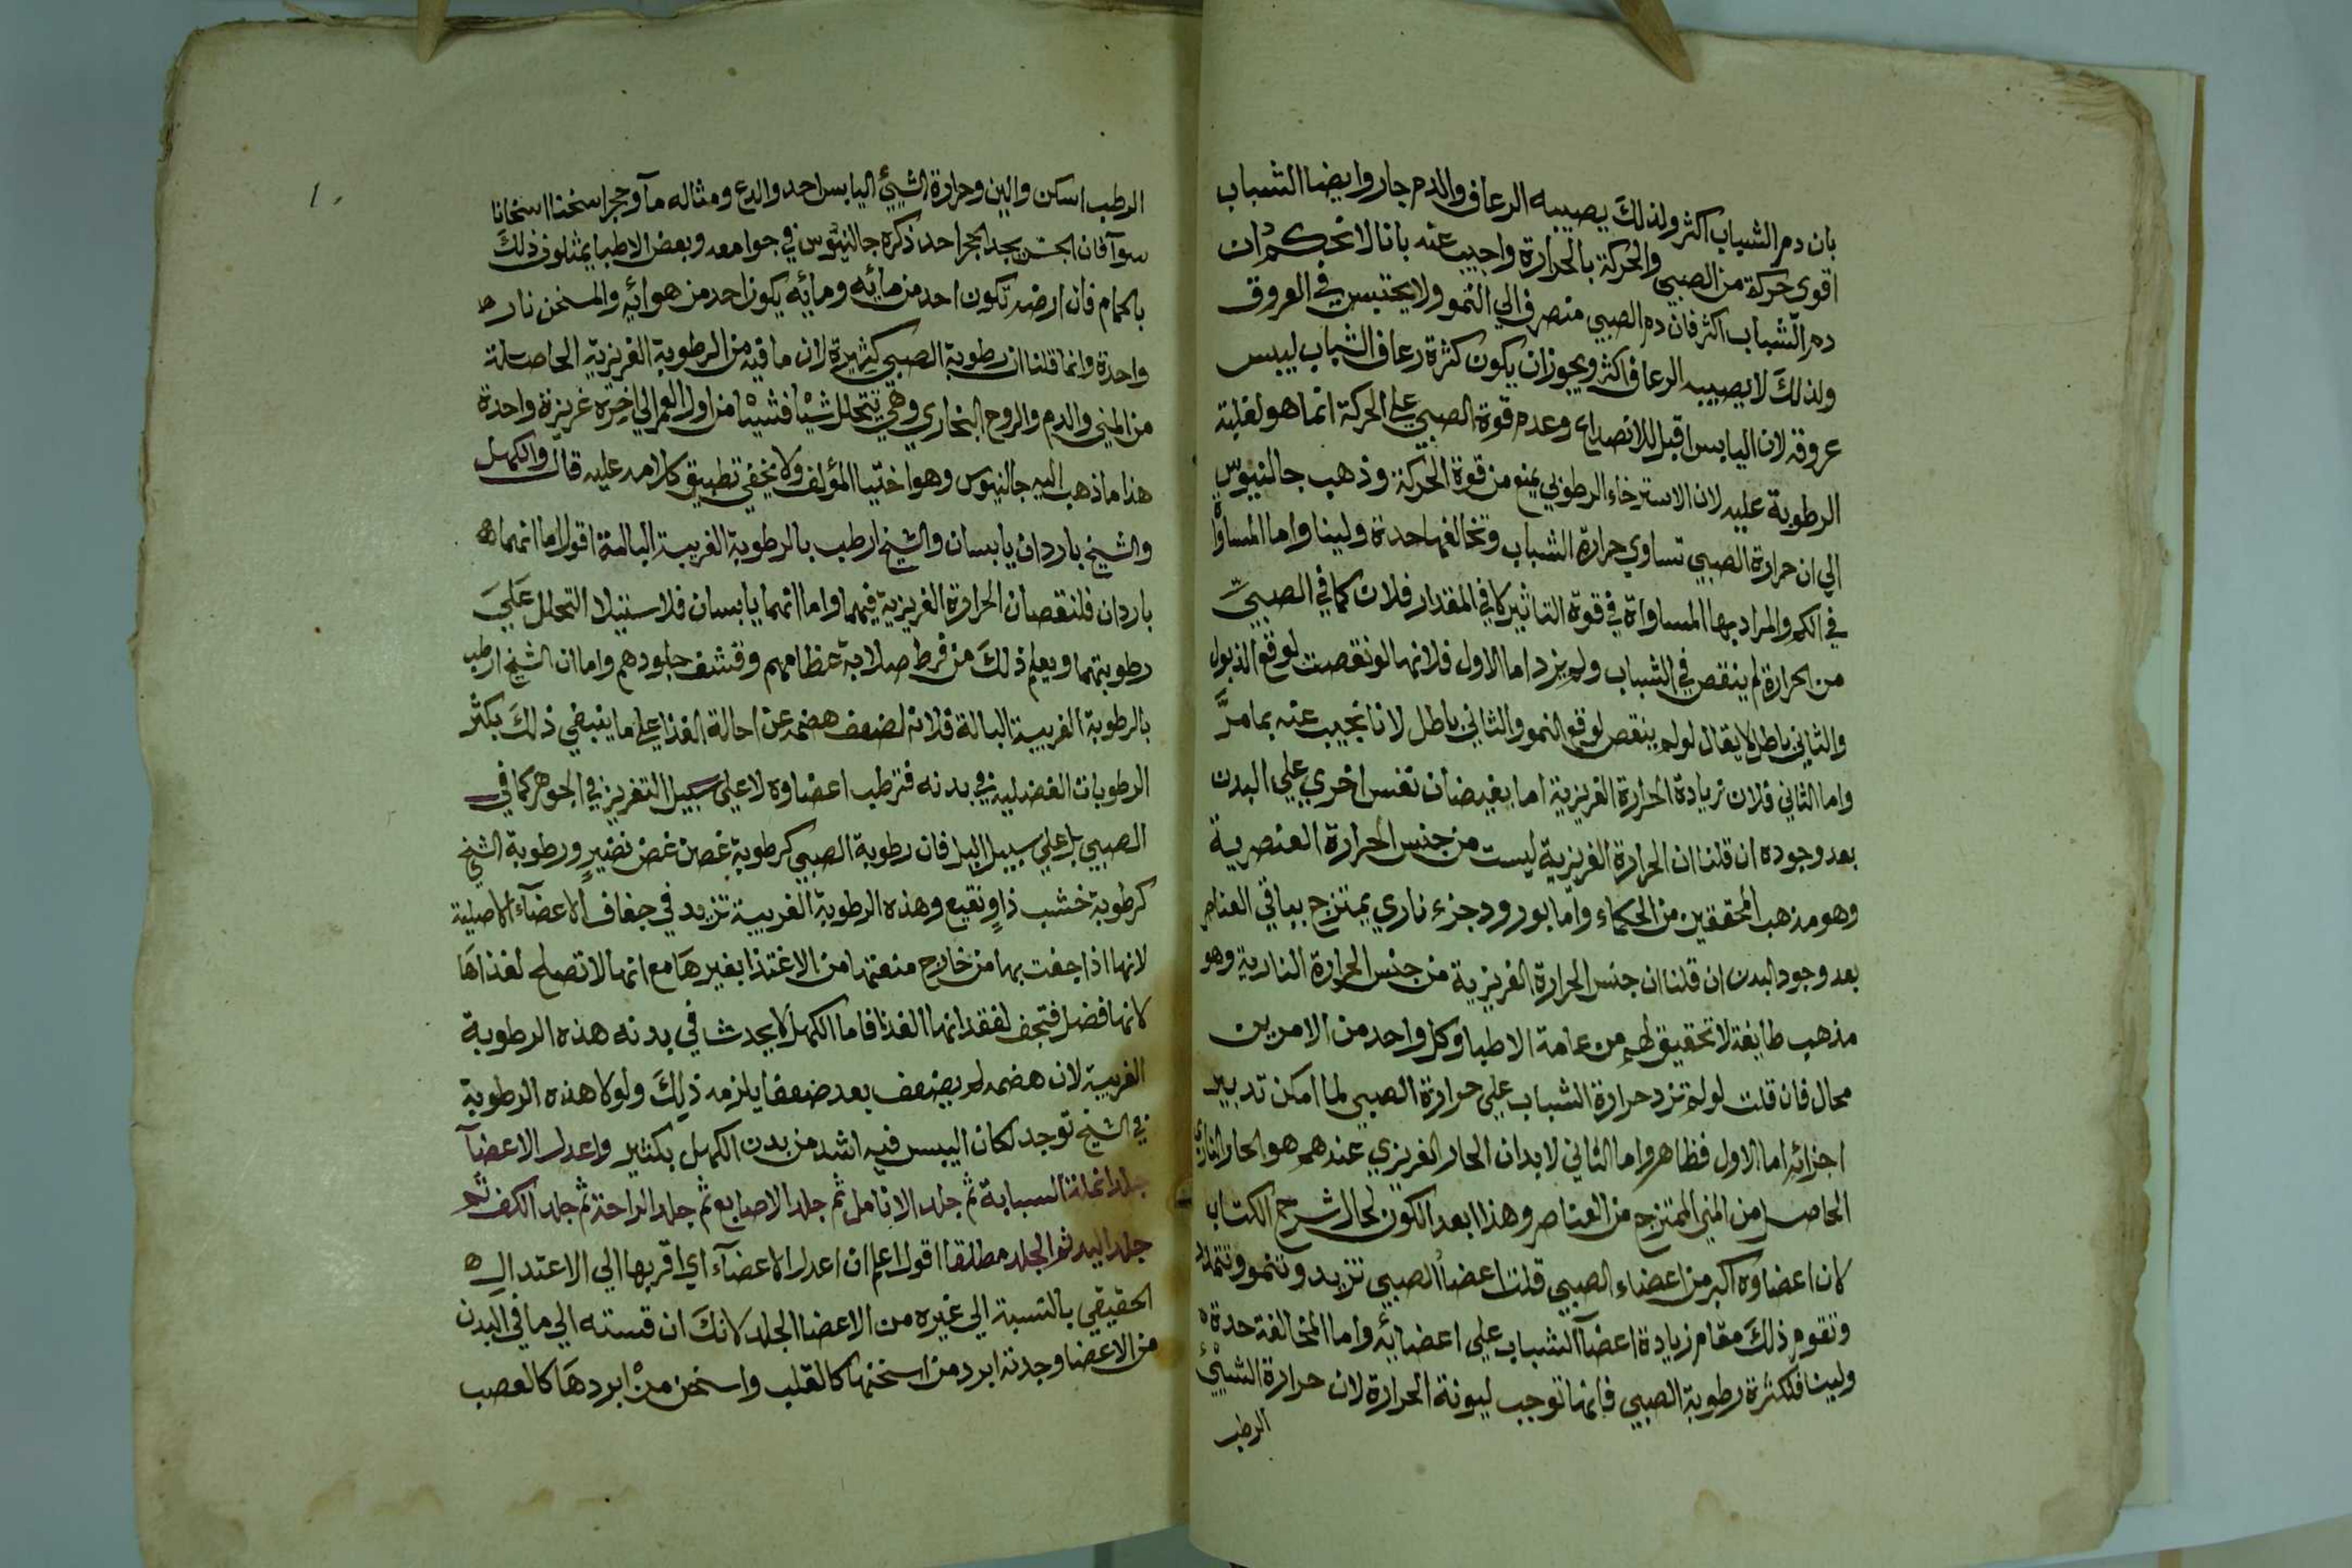 بان دم الشباب اكثر ولذلك يصيبه الرعاف والدم حار وايضا الشباب
اقوى حركة من الصبي والحركة بالحرارة واجيب عنه بانا لا نحكم ان
دم الشباب اكثر فان دم الصبي منصرف الي النمو ولا يحتبس في العروق
ولذلك لا يصيبه الرعاف اكثر ويجوز ان يكون كثرة رعاف الشباب ليبس
عروقه لان اليابس اقبل للانصداع وعدم قوة الصبي علي الحركة انما هو لغلبة
الرطوبة عليه لان الاسترخاء الرطوبي يمنع من قوة الحركة وذهب جالنيوس
الي ان حرارة الصبي تساوي حرارة الشباب وتخالفها حدة ولينا واما المساواة
في الكم والمراد بها المساواة في قوة التاثير كما في المقدار فلان كما في الصبي
من الحرارة لم ينقص في الشباب ولم يزد اما الاول فلانها لو نقصت لوقع الذبول
والثاني باطل لا يقال لو لم ينقص لوقع النمو والثاني باطل لانا نجيب عنه بما مر
واما الثاني فلان زيادة الحرارة الغريزية اما بفيضان نفس اخري علي البدن
بعد وجوده ان قلنا ان الحرارة الغريزية ليست من جنس الحرارة العنصرية
وهو مذهب المحققين من الحكماء واما بورود جزء ناري يمتزج بباقي العناصر
بعد وجود البدن ان قلنا ان جنس الحرارة الغريزية من جنس الحرارة النارية وهو
مذهب طايفة لا تحقيق لهم من عامة الاطبا وكل واحد من الامرين
محال فان قلت لو لم تزد حرارة الشباب علي حرارة الصبي لما امكن تدبير
اجزائه اما الاول فظاهر واما الثاني لا بد ان الحار الغريزي عندهم هو الحار الناري
الحاصل من المني الممتزج من العناصر وهذا بعد الكون لحال شرح الكتاب
لان اعضاوه اكبر من اعضاء الصبي قلت اعضاء الصبي تزيد وتنمو وتتخلل
وتقوم ذلك مقام زيادة اعضآ الشباب علي اعضايه واما المخالفة حدة
ولينا فلكثرة رطوبة الصبي فانها توجب ليونة الحرارة لان حرارة الشيئ
الرطب
الرطب اسكن والين وحرارة الشيئ اليابس احد والدع ومثاله مآ وحجر اسخنا اسخانا
سوآ فان الجس يجد الحجر احد ذكره جالنيوس في جوامعه وبعض الاطبا يمثلون ذلك
بالحمام فان ارضه تكون احد من مائه ومائه يكون احد من هوائه والمسخن نار
واحدة وانما قلنا ان رطوبة الصبي كثيرة لان ما فيه من الرطوبة الغريزية الحاصلة
من المني والدم والروح البخاري وهي تتحلل شيئا فشيئا من اول العمر الي اخره غريزة واحدة
هذا ما ذهب اليه جالنيوس وهو اختيا المؤلف ولا يخفي تطبيق كلامه عليه قال والكهل
والشيخ باردان يابسان والشيخ ارطب بالرطوبة الغريبة البالة اقول اما انهما
باردان فلنقصان الحرارة الغريزية فيهما واما انهما يابسان فلاستيلا التحلل علي
رطوبتهما ويعلم ذلك من فرط صلابة عظامهم وقشف جلودهم واما ان الشيخ ارطب
بالرطوبة الغريبة البالة فلانه لضعف هضمه عن احالة الغذا علي ما ينبغي ذلك بكثر
الرطوبات الفضلية في بدنه فترطب اعضاوه لا علي سبيل التغريز في الجوهر كما في
الصبي بل علي سبيل البل فان رطوبة الصبي كرطوبة غصن غض نضير ورطوبة الشيخ
كرطوبة خشب ذاو نقيع وهذه الرطوبة الغريبة تزيد في جفاف الاعضآء الاصلية
لانها اذا جفت بها من خارج منعتها من الاغتذا بغيرها مع انها لا تصلح لغذاها
لانها فضل فتجف لفقدانها الغذا فاما الكهل لا يحدث في بدنه هذه الرطوبة
الغريبة لان هضمه لم يضعف بعد ضعفا يلزمه ذلك ولولا هذه الرطوبة
في الشيخ توجد لكان اليبس فيه اشد من بدن الكهل بكثير واعدل الاعضآ
جلد انملة السبابة ثم جلد الانامل ثم جلد الاصابع ثم جلد الراحة ثم جلد الكف ثم
جلد اليد ثم الجلد مطلقا اقول اعلم ان اعدل الاعضآء اي اقربها الي الاعتدال
الحقيقي بالنسبة الي غيره من الاعضا الجلد لانك ان قسته الي ما في البدن
من الاعضا وجدته ابرد من اسخنها كالقلب واسخن من ابردها كالعصب